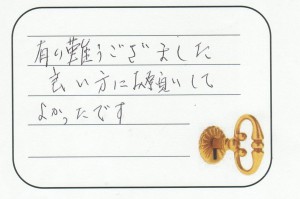 有り難うござました
良い方にお願いして
よかったです